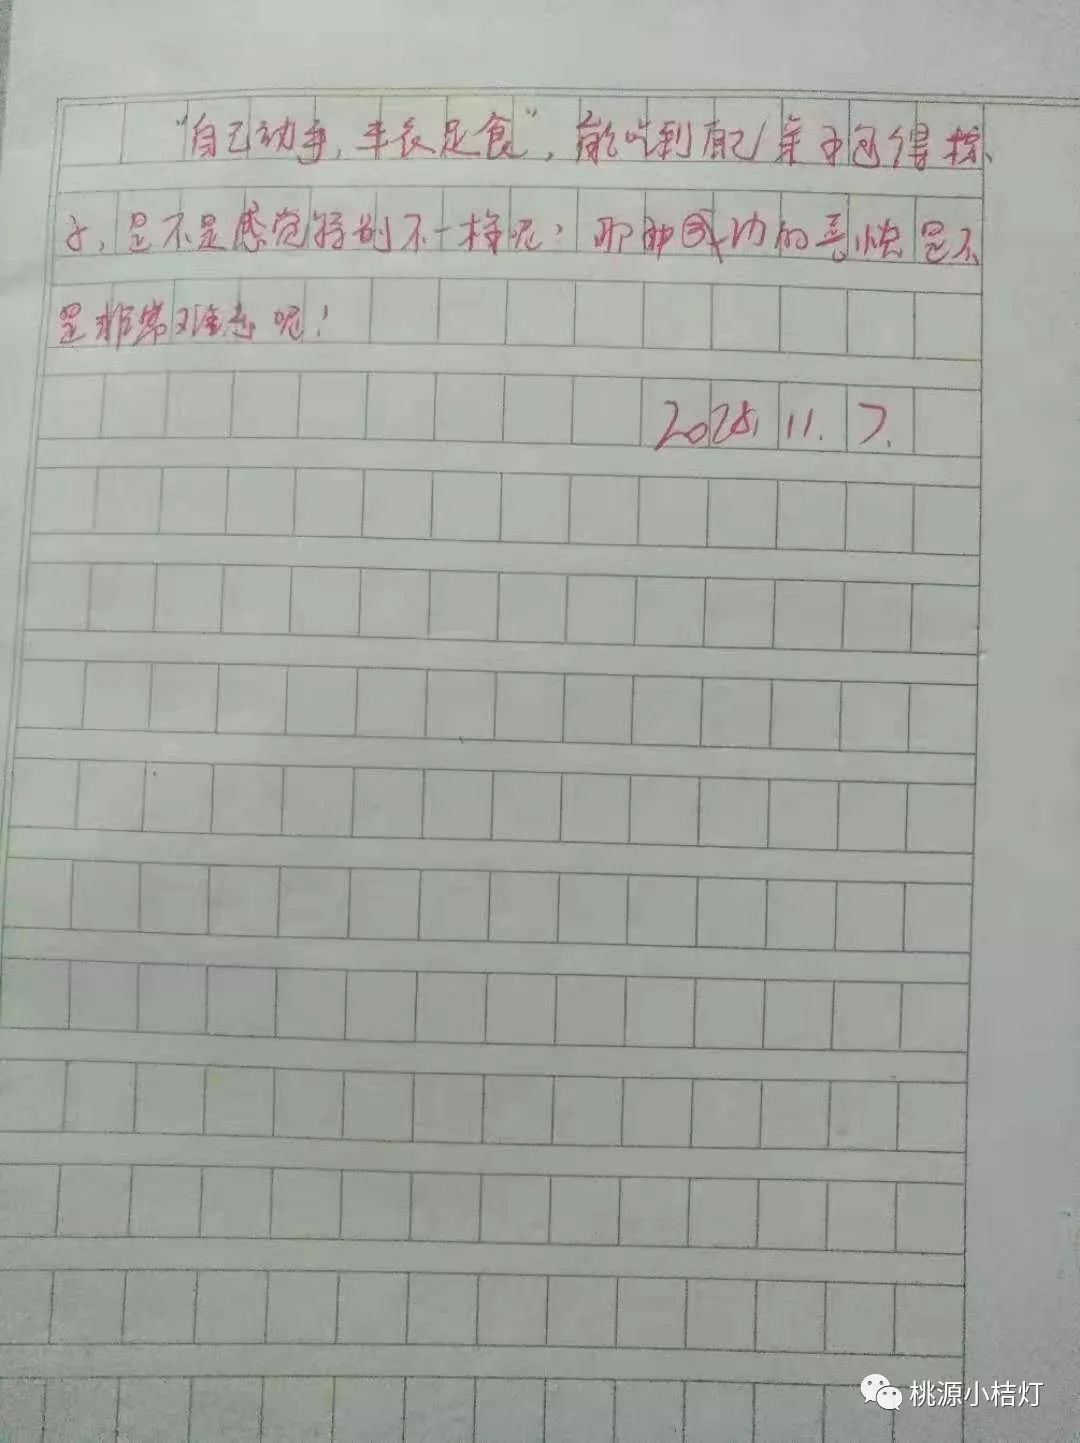 “自己动手,丰衣足食”,能吃到自己亲手包得粽
子,是不是感觉特别不一样呢?那种成功的喜悦是不
是非常难忘呢!
11.7.
桃源小桔灯